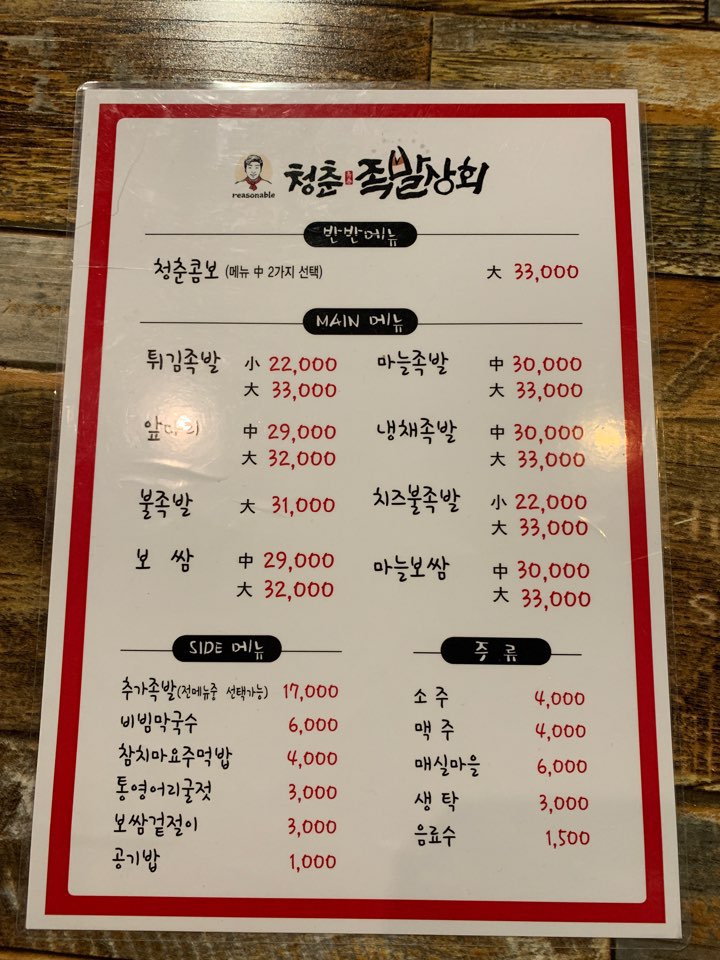 reasonable
청춘 족발상회
반반메뉴
청춘콤보 (메뉴 中 2가지 선택) 大 33,000
MAIN 메뉴
튀김족발 小 22,000
大 33,000
앞다리 中 29,000
大 32,000
불족발 大 31,000
보 쌈 中 29,000
大 32,000
마늘족발 中 30,000
大 33,000
냉채족발 中 30,000
大 33,000
치즈불족발 小 22,000
大 33,000
마늘보쌈 中 30,000
大 33,000
SIDE 메뉴
추가족발(전메뉴중 선택가능) 17,000
비빔막국수 6,000
참치마요주먹밥 4,000
통영어리굴젓 3,000
보쌈겉절이 3,000
공기밥 1,000
주 류
소 주 4,000
맥 주 4,000
매실마을 6,000
생 탁 3,000
음료수 1,500